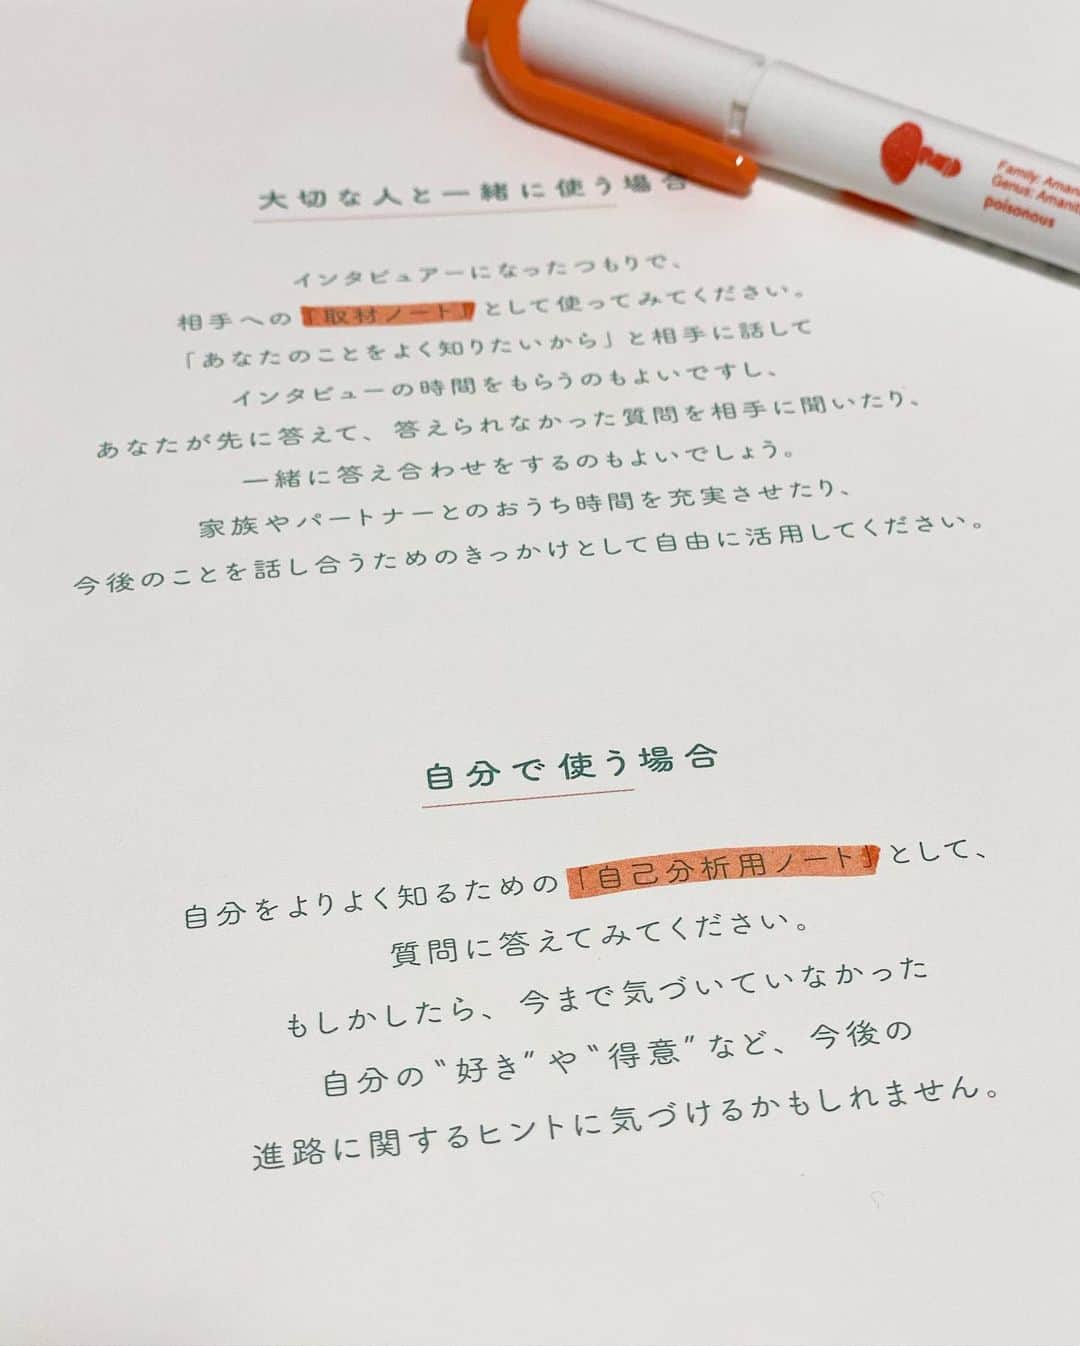 Family: Aman
Genus: Amanit
poisonous
大切な人と一緒に使う場合
インタビュアーになったつもりで、
相手への「取材ノート」として使ってみてください。
「あなたのことをよく知りたいから」と相手に話して
インタビューの時間をもらうのもよいですし、
あなたが先に答えて、答えられなかった質問を相手に聞いたり、
一緒に答え合わせをするのもよいでしょう。
家族やパートナーとのおうち時間を充実させたり、
今後のことを話し合うためのきっかけとして自由に活用してください。
自分で使う場合
自分をよりよく知るための「自己分析用ノート」として、
質問に答えてみてください。
もしかしたら、今まで気づいていなかった
自分の〝好き〟や〝得意〟など、今後の
進路に関するヒントに気づけるかもしれません。